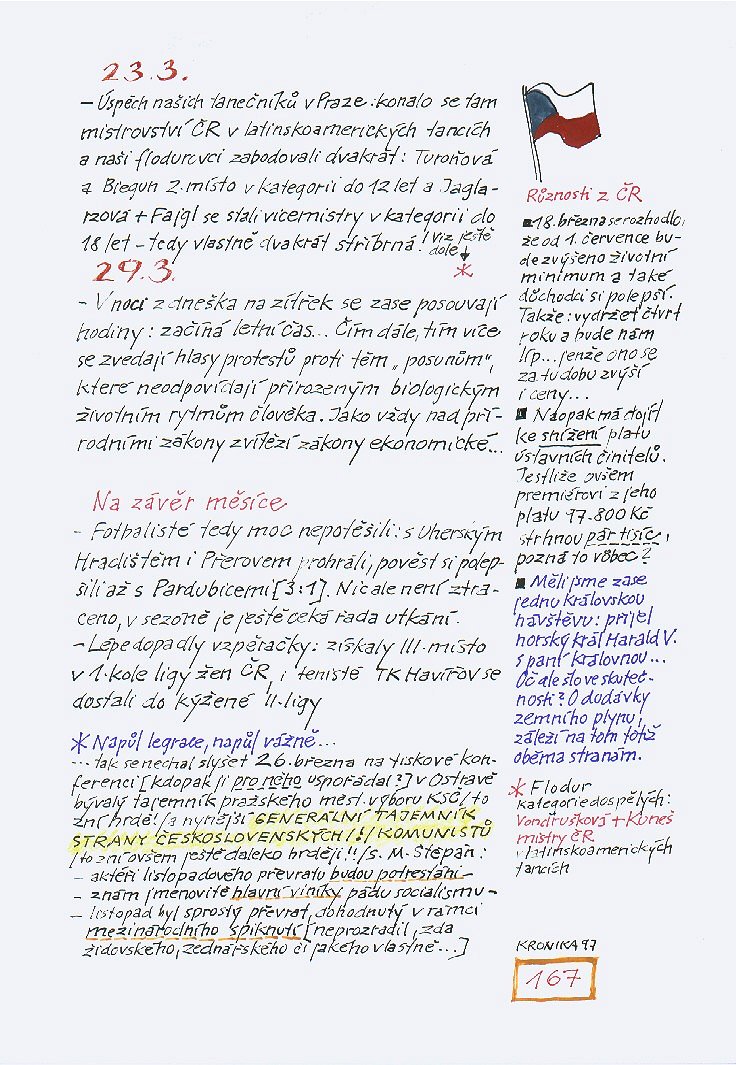 23.3.
– Úspěch našich tanečníků v Praze: konalo se tam
mistrovství ČR v latinskoamerických tancích
a naši flodurovci zabodovali dvakrát: Turoňová
a Biegun 2. místo v kategorii do 12 let a Jagla-
rzová + Fajgl se stali vicemistry v kategorii do
18 let – tedy vlastně dvakrát stříbrná! viz ještě
dole
*
29.3.
– V noci z dneška na zítřek se zase posouvají
hodiny: začíná letní čas... Čím dále, tím více
se zvedají hlasy protestů proti těm „posunům",
které neodpovídají přirozeným biologickým
životním rytmům člověka. Jako vždy nad pří-
rodními zákony zvítězí zákony ekonomické...
Na závěr měsíce
– Fotbalisté tedy moc nepotěšili: s Uherským
Hradištěm i Přerovem prohráli, pověst si polep-
šili až s Pardubicemi [3:1]. Nic ale není ztra-
ceno, v sezoně je ještě čeká řada utkání.
– Lépe dopadly vzpěračky: získaly III. místo
v 1. kole ligy žen ČR, i tenisté TK Havířov se
dostali do kýžené II. ligy
* Napůl legrace, napůl vážně...
... tak se nechal slyšet 26. března na tiskové kon-
ferenci [kdopak ji pro něho uspořádal?] v Ostravě
bývalý tajemník pražského měst. výboru KSČ /to
zní hrdě!/ a nynější GENERÁLNÍ TAJEMNÍK
STRANY ČESKOSLOVENSKÝCH /!/ KOMUNISTŮ
/to zní ovšem ještě daleko hrději!!/ s. M. Štěpán:
– aktéři listopadového převratu budou potrestáni –
– znám jmenovitě hlavní viníky pádu socialismu –
– listopad byl sprostý převrat, dohodnutý v rámci
mezinárodního spiknutí [neprozradil, zda
židovského, zednářského či jakého vlastně...]
Různosti z ČR
■ 18. března se rozhodlo,
že od 1. července bu-
de zvýšeno životní
minimum a také
důchodci si polepší.
Takže: vydržet čtvrt
roku a bude nám
líp... jenže ono se
za tu dobu zvýší
i ceny...
■ Naopak má dojít
ke snížení platu
ústavních činitelů.
Jestliže ovšem
premiérovi z jeho
platu 97.800 Kč
strhnou pár tisíc,
pozná to vůbec?
■ Měli jsme zase
jednu královskou
návštěvu: přijel
norský král Harald V.
s paní královnou...
Oč ale šlo ve skuteč-
nosti? O dodávky
zemního plynu,
záleží na tom totiž
oběma stranám.
* Flodur
kategorie dospělých:
Vondrušková + Kuneš
mistry ČR
v latinskoamerických
tancích
KRONIKA 97
167